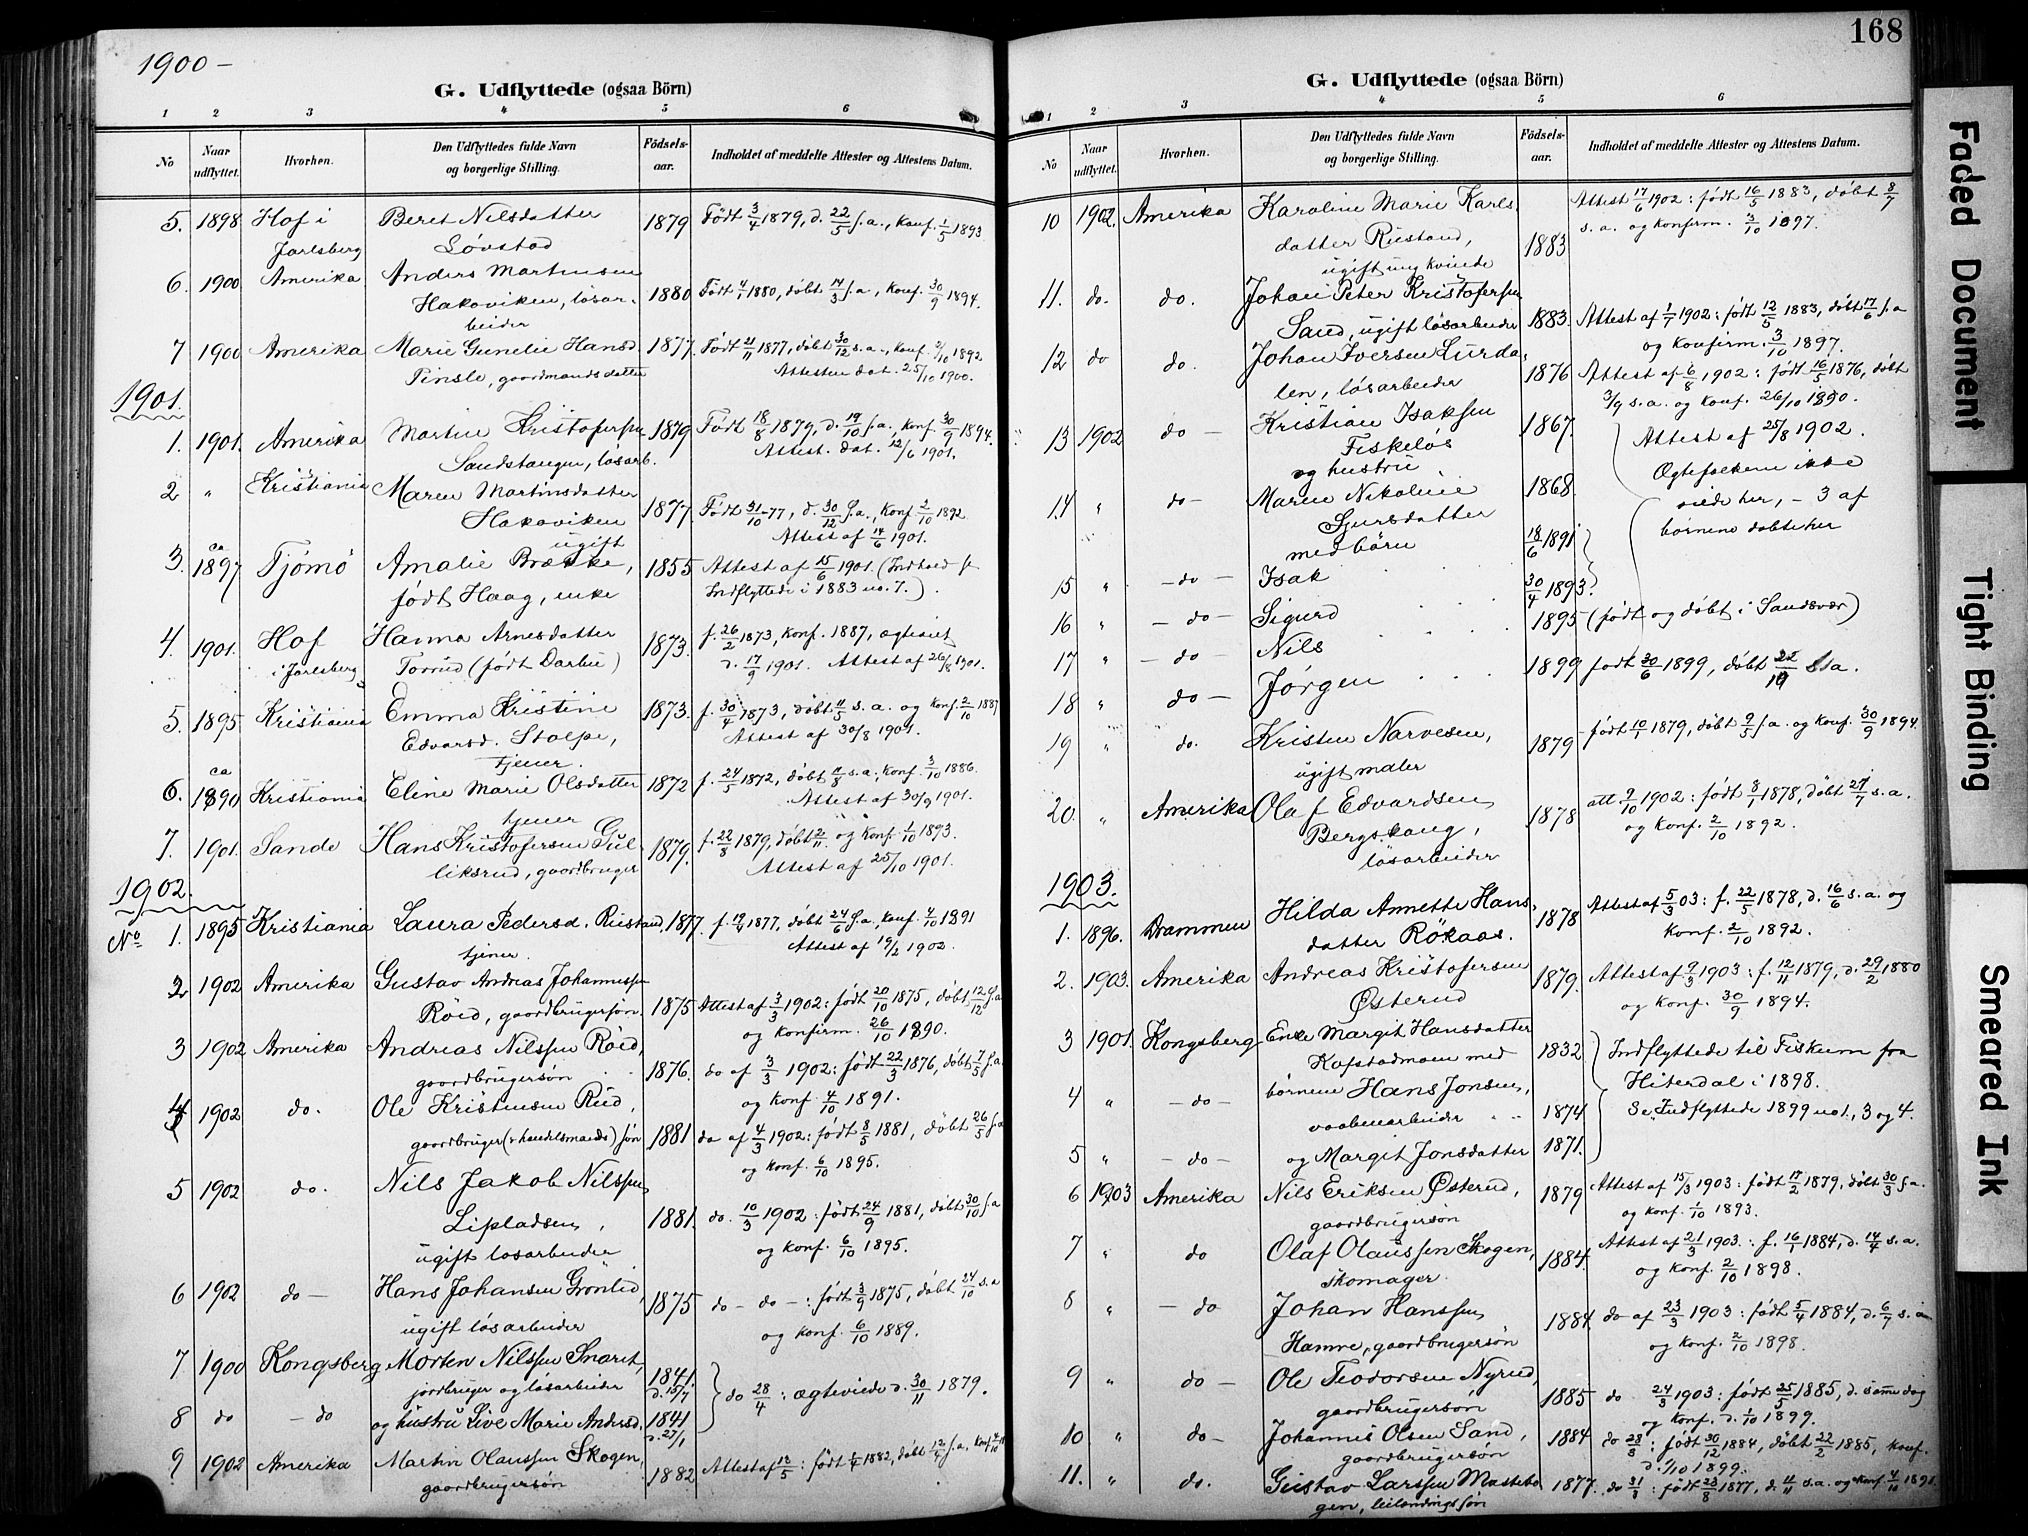 1900 –
G. Udflyttede (ogsaa Börn)
1 2 3 4 5 6
No
Naar udflyttet.
Hvorhen.
Den Udflyttedes fulde Navn og borgerlige Stilling.
Fødselsaar.
Indholdet af meddelte Attester og Attestens Datum.
5. 1898 Hof i Jarlsberg Beret Nilsdatter Løvstad 1879 Født 3/4 1879, d. 22/5 s.a., konf. 1/5 1893
6. 1900 Amerika Anders Martinsen Hakaviken, løsarbeider 1880 Født 4/1 1880, døbt 14/3 s.a., konf. 30/9 1894.
7 1900 Amerika Marie Gunelie Hansd. Tinsle, gaardmandsdatter 1877. Født 21/11 1877, døbt 30/12 s.a., konf. 2/10 1892
Attesten dat. 25/10 1900.
1901.
1. 1901. Amerika Martin Kristofersen Sandstangen, løsarb. 1879 Født 18/8 1879, d. 19/10 s.a., konf. 30/9 1894.
Attest. dat. 12/6 1901.
2 " Kristiania Maren Martinsdatter Hakaviken ugift 1877. Født 31/10 -77, d. 30/12 s.a., konf 2/10 1892
Attest af 14/6 1901.
3. ca 1897 Tjömö Amalie Brække, født Haag, enke 1855 Attest af 15/6 1901. (Indhold se
Indflyttede i 1883 no. 7.).
4. 1901. Hof i Jarlsberg Hanna Arnesdatter Torrud (født Darbu) 1873. f. 26/2 1873, konf. 1887, ægteviet
d. 17/9 1901. Attest af 26/8 1901.
5. 1895 Kristiania Emma Kristine Edvarsd. Stolpe, tjener. 1873. f. 30/4 1873, døbt 11/5 s.a. og konf. 2/10 1887
Attest af 30/8 1901.
6. ca 1890 Kristiania Eline Marie Olsdatter tjener 1872 f. 24/5 1872, døbt 11/8 s.a., konf. 3/10 1886.
Attest af 30/9 1901.
7. 1901. Sande Hans Kristofersen Gulliksrud, gaardbruger 1879. f. 22/8 1879, døbt 2/11 og konf. 1/10 1893.
Attest af 25/10 1901.
1902.
No 1. 1895 Kristiania Laura Pedersd. Rustand, tjener. 1877. f. 19/4 1877, døbt 24/6 s.a., konf. 4/10 1891
Attest af 19/2 1902.
2 1902 Amerika Gustav Andreas Johannessen Röid, gaardbrugersøn. 1875 Attest af 3/3 1902: født 20/10 1875, døbt 12/12 s.a.
og konfirm. 26/10 1890.
3 1902 Amerika Andreas Nilssen Röid, gaardbrugersøn 1876. do af 3/3 1902: født 22/3 1876, døbt 7/5 s.a.
og konf. 4/10 1891.
4 1902 do. Ole Kristensen Rud, gaardbruger (& handelsmands) søn 1881 do af 4/3 1902: født 8/5 1881, døbt 26/5 s.a
og konf. 6/10 1895.
5 1902 do. Nils Jakob Nilssen Lipladsen, ugift løsarbeider 1881. do. 10/3 1902: født 24/9 1881, døbt 30/10 s.a
og konf. 6/10 1895.
6 1902 do – Hans Johansen Grönlid, ugift løsarbeider 1875 do – do –: født 3/9 1875, døbt 24/10 s.a
og konf. 6/10 1889.
7 1900 Kongsberg Morten Nilssen Snaret, jordbruger og løsarbeider 1841. d. 15/7
do 28/4: ægteviede d. 30/11 1879.
8 do – do og hustru Live Marie Andersd. 1841 d. 27/1
9 1902 Amerika Martin Olaussen Skogen, gaardbrugersøn 1882 Attest af 13/5: født 1/4 1882, døbt 12/4 s.a., konf. 4/10
168
G. Udflyttede (ogsaa Börn)
1 2 3 4 5 6
No
Naar udflyttet.
Hvorhen.
Den Udflyttedes fulde Navn og borgerlige Stilling.
Fødselsaar.
Indholdet af meddelte Attester og Attestens Datum.
10 1902. Amerika Karoline Marie Karlsdatter Rustand, ugift ung kvinde 1883 Attest 17/6 1902: født 16/5 1883, døbt 8/7
s.a. og konfirm. 3/10 1897.
11. do. do. Johan Peter Kristofersen Sand, ugift løsarbeider 1883. Attest af 1/7 1902: født 12/5 1883, døbt 17/6 s.a
og konfirm. 3/10 1897.
12 do do. Johan Iversen Lurdalen, løsarbeider 1876 Attest af 6/8 1902: født 16/5 1876, døbt
3/9 s.a. og konf. 26/10 1890.
13 1902 do – Kristian Isaksen Fiskeløs og hustru 1867. Attest af 25/8 1902.
Ægtefolkene ikke
14 " do – Maren Nikoline Sjursdatter med børn 1868. viede her, – 3 af
børnene døbte her
15 " – do – Isak 18/6 1891
16 " – do – Sigurd 30/4 1893.
17 " – do – Nils 1895 (født og døbt i Sandsvær)
18 " do – Jørgen 1899 født 30/6 1899, døbt 22/10 s.a.
19 " do. Kristen Narvesen, ugift maler 1879 født 10/1 1879, døbt 9/5 s.a. og konf. 30/9 1894.
20. " Amerika Olaf Edvardsen Bergskaug, løsarbeider 1878 att 9/10 1902: født 8/1 1878, døbt 27/7 s.a.
og konf. 2/10 1892.
1903.
1. 1896. Drammen Hilda Annette Hansdatter Rökaas. 1878 Attest af 5/3 03: f. 22/5 1878, d. 16/6 s.a. og
konf. 2/10 1892.
2. 1903. Amerika Andreas Kristofersen Østerud 1879. Attest af 9/3 1903: f. 12/11 1879, d. 29/2 1880
og konf. 30/9 1894.
3 1901. Kongsberg Enke Margit Hansdatter Kopstadmoen med 1832 Indflyttede til Fiskum fra
Hiterdal i 1898.
4 " – do – børnene Hans Jonsen, vaabenarbeider 1874 Se Indflyttede 1899 no 1, 3 og 4.
5 " – do – og Margit Jonsdatter 1871.
6 1903 Amerika Nils Eriksen Østerud, gaardbrugersøn 1879 Attest af 15/3 1903: født 17/2 1879, døbt 30/3 s.a.
og konf. 1/10 1893.
7 " do Olaf Olaussen Skogen, skomager. 1884. Attest af 21/3 1903.: f. 16/1 1884, d. 14/4 s.a.
og konf. 2/10 1898.
8 " – do Johan Hanssen Hamre, gaardbrugersøn 1884. do af 23/3 1903: født 5/4 1884, d. 6/7 s.a
og konf. 2/10 1898.
9 " do – Ole Teodorsen Nyrud, gaardbrugersøn 1885 do 24/3 1903: født 25/5 1885, d. samme dag
og konf. d. 1/10 1899.
10 " do – Johannes Olsen Sand, gaardbrugersøn 1884 do 28/3: født 30/12 1884, døbt 22/2 1885, konf.
d. 1/10 1899.
11. " do. Gustav Larssen Mastebogen, leilændings søn 1877. do 31/3: født 23/8 1877, d. 4/11 s.a. og konf. 4/10 1891.
Faded Document
Tight Binding
Smeared Ink